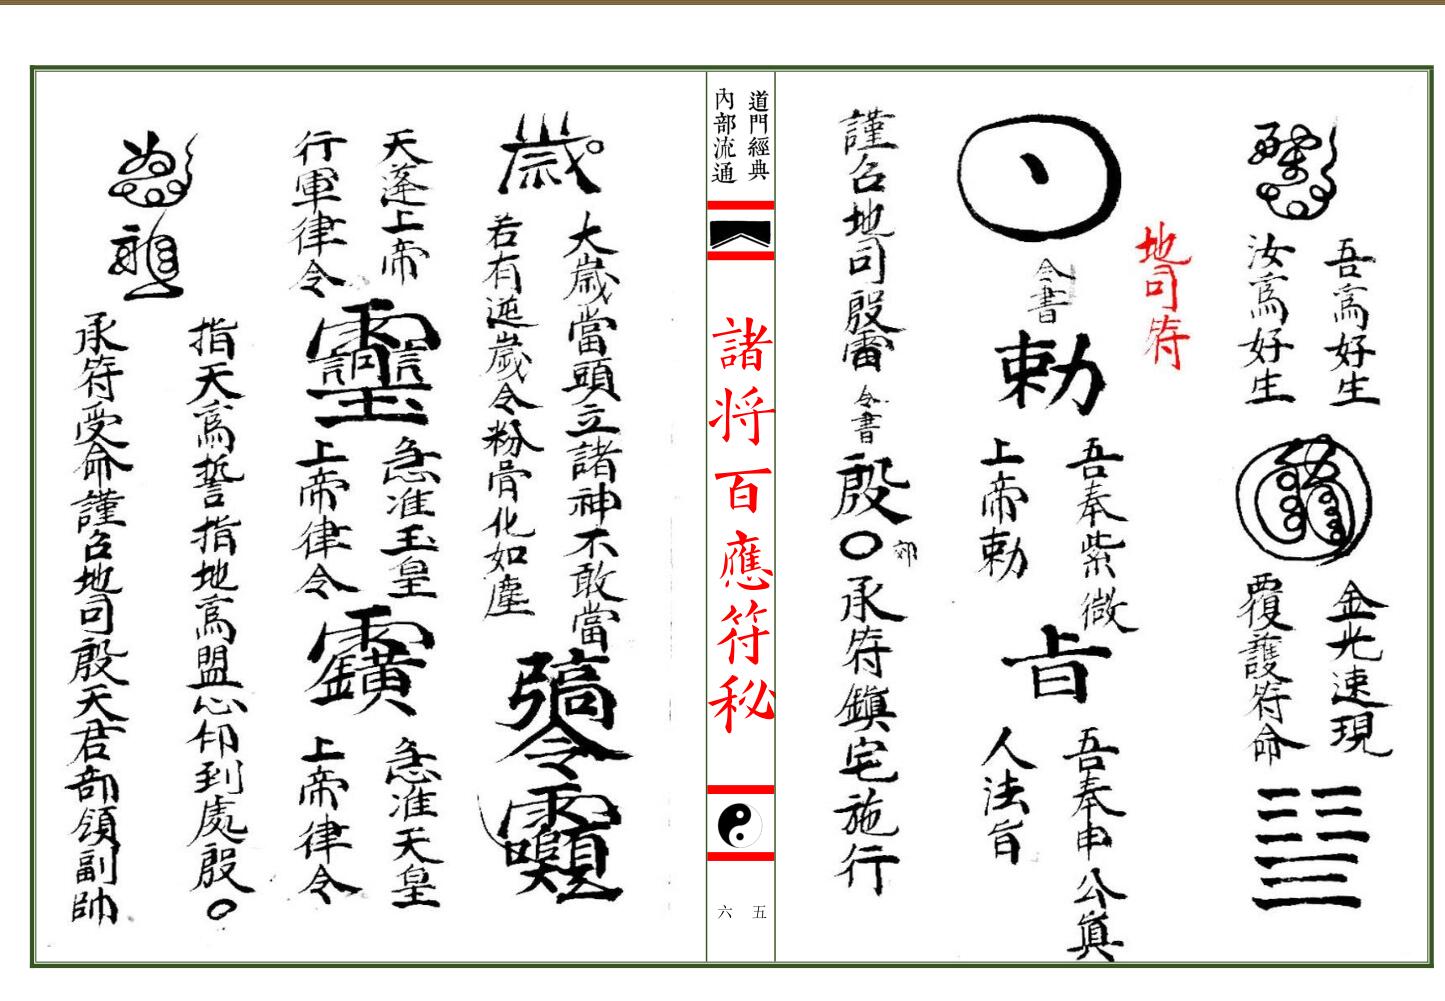 吾為好生
汝為好生
金光速現
覆護符命
地司符
令書
勅
吾奉紫微
上帝勅
旨
吾奉申公真
人法旨
謹召地司殷雷
令書
殷
承符鎮宅施行
道門經典
內部流通
諸将百應符秘
五
六
歲
大歲當頭立諸神不敢當
若有逆歲令粉骨化如塵
令
天蓬上帝
行軍律令
急准玉皇
上帝律令
急准天皇
上帝律令
指天為誓指地為盟心印到處殷
承符受命謹召地司殷天君部領副帥